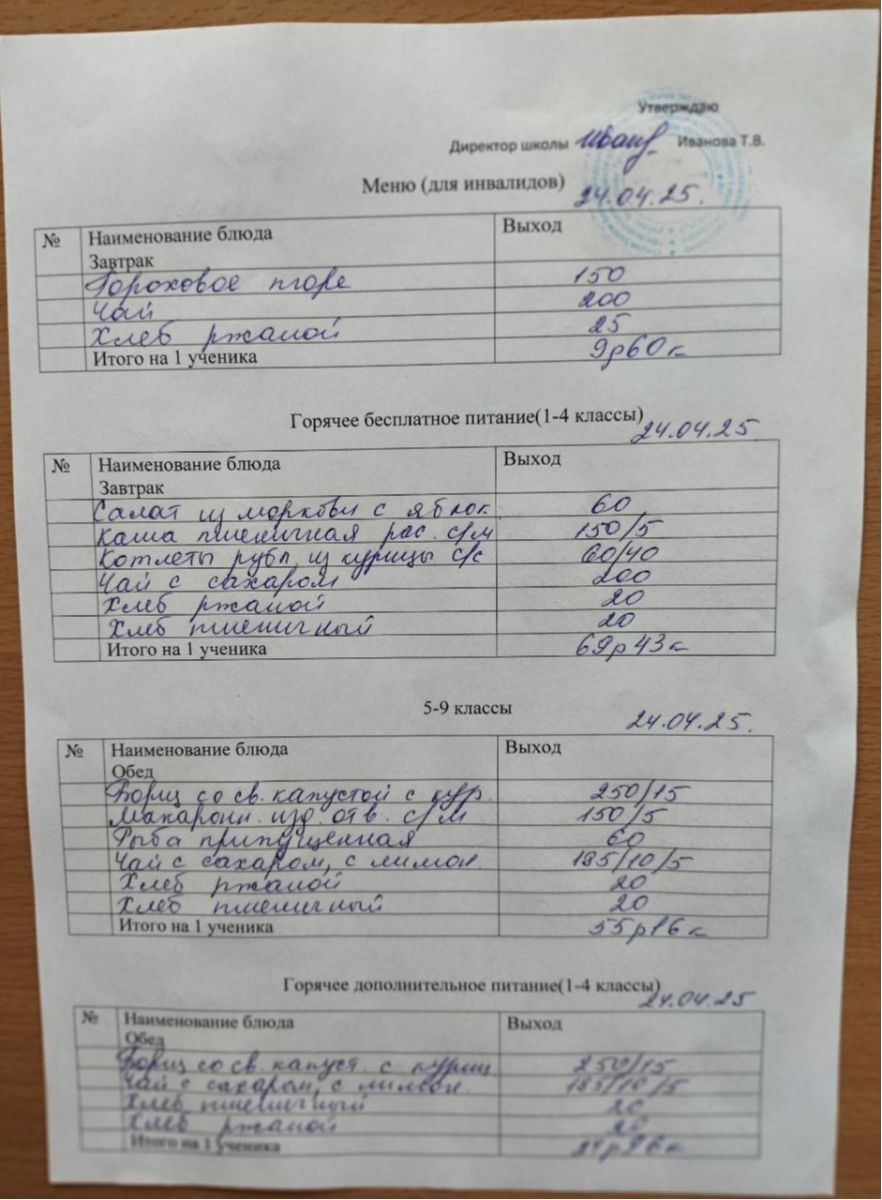 Утверждаю
Директор школы Иванова Т.В.
Меню (для инвалидов)
24.04.25.
№ Наименование блюда Выход
Завтрак
Гороховое пюре 150
Чай 200
Хлеб ржаной 25
Итого на 1 ученика 9р60к
Горячее бесплатное питание(1-4 классы)
24.04.25
№ Наименование блюда Выход
Завтрак
Салат из моркови с яблок 60
Каша пшеничная рас. с/м 150/5
Котлеты рубл. из курицы с/с 60/40
Чай с сахаром 200
Хлеб ржаной 20
Хлеб пшеничный 20
Итого на 1 ученика 69р43к
5-9 классы
24.04.25.
№ Наименование блюда Выход
Обед
Борщ со св. капустой с кур. 250/15
Макарон. изд. отв. с/м 150/5
Рыба припущенная 60
Чай с сахаром, с лимон 185/10/5
Хлеб ржаной 20
Хлеб пшеничный 20
Итого на 1 ученика 55р16к
Горячее дополнительное питание(1-4 классы)
24.04.25
№ Наименование блюда Выход
Обед
Борщ со св. капуст. с куриц 250/15
Чай с сахаром, с лимон 185/10/5
Хлеб пшеничный 20
Хлеб ржаной 20
Итого на 1 ученика